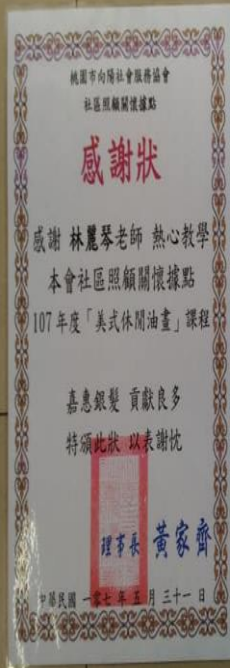 桃園市向陽社會服務協會
社區照顧關懷據點
感謝狀
感謝 林麗琴老師 熱心教學
本會社區照顧關懷據點
107年度「美式休閒油畫」課程
嘉惠銀髮 貢獻良多
特頒此狀 以表謝忱
理事長 黃家齊
中華民國 一零七 年 五 月 三十一 日